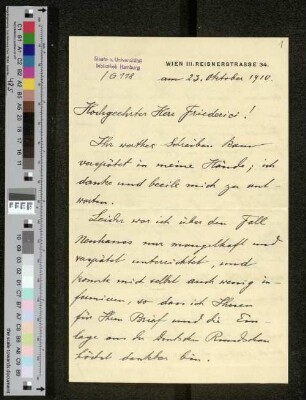 1
Staats- u. Universitäts-
bibliothek Hamburg
WIEN III. REISNERSTRASSE 34.
am 23. Oktober 1910.
Hochgeehrter Herr Friederici!
Ihr werthes Schreiben kam
verspätet in meine Hände; ich
danke und beeile mich zu ant-
worten.
Leider war ich über den Fall
Neuhaus nur mangelhaft und
verspätet unterrichtet, und
konnte mich selbst auch wenig in-
formieren, so dass ich Ihnen
für Ihren Brief und die Ein-
lage aus der Deutschen Rundschau
höchst dankbar bin.